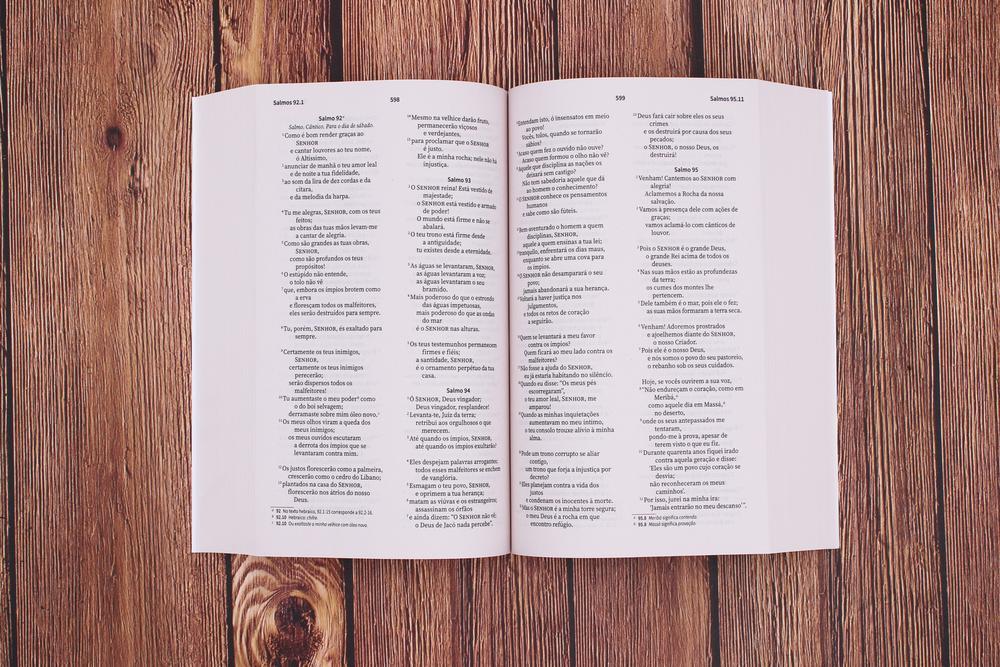 Salmos 92.1
598
Salmo 92ª
Salmo. Cântico. Para o dia de sábado.
¹Como é bom render graças ao
SENHOR
e cantar louvores ao teu nome,
ó Altíssimo,
²anunciar de manhã o teu amor leal
e de noite a tua fidelidade,
³ao som da lira de dez cordas e da
cítara,
e da melodia da harpa.
⁴Tu me alegras, SENHOR, com os teus
feitos;
as obras das tuas mãos levam-me
a cantar de alegria.
⁵Como são grandes as tuas obras,
SENHOR,
como são profundos os teus
propósitos!
⁶O estúpido não entende,
o tolo não vê
⁷que, embora os ímpios brotem como
a erva
e floresçam todos os malfeitores,
eles serão destruídos para sempre.
⁸Tu, porém, SENHOR, és exaltado para
sempre.
⁹Certamente os teus inimigos,
SENHOR,
certamente os teus inimigos
perecerão;
serão dispersos todos os
malfeitores!
¹⁰Tu aumentaste o meu poder como
o do boi selvagem;
derramaste sobre mim óleo novo.
¹¹Os meus olhos viram a queda dos
meus inimigos;
os meus ouvidos escutaram
a derrota dos ímpios que se
levantaram contra mim.
¹²Os justos florescerão como a palmeira,
crescerão como o cedro do Líbano;
¹³plantados na casa do SENHOR,
florescerão nos átrios do nosso
Deus.
92 No texto hebraico, 92.1-15 corresponde a 92.2-16.
92.10 Hebraico: chifre.
92.10 Ou exaltaste a minha velhice com óleo novo.
¹⁴Mesmo na velhice darão fruto,
permanecerão viçosos
e verdejantes,
¹⁵para proclamar que o SENHOR
é justo.
Ele é a minha rocha; nele não há
injustiça.
Salmo 93
¹O SENHOR reina! Está vestido de
majestade;
o SENHOR está vestido e armado
de poder!
O mundo está firme e não se
abalará.
²O teu trono está firme desde
a antiguidade;
tu existes desde a eternidade.
³As águas se levantaram, SENHOR,
as águas levantaram a voz;
as águas levantaram o seu
bramido.
⁴Mais poderoso do que o estrondo
das águas impetuosas,
mais poderoso do que as ondas
do mar
é o SENHOR nas alturas.
⁵Os teus testemunhos permanecem
firmes e fiéis;
a santidade, SENHOR,
é o ornamento perpétuo da tua
casa.
Salmo 94
¹Ó SENHOR, Deus vingador;
Deus vingador, resplandece!
²Levanta-te, Juiz da terra;
retribui aos orgulhosos o que
merecem.
³Até quando os ímpios, SENHOR,
até quando os ímpios exultarão?
⁴Eles despejam palavras arrogantes;
todos esses malfeitores se enchem
de vanglória.
⁵Esmagam o teu povo, SENHOR,
e oprimem a tua herança;
⁶matam as viúvas e os estrangeiros;
assassinam os órfãos
⁷e ainda dizem: "O SENHOR não vê;
o Deus de Jacó nada percebe".
599
Salmos 95.11
⁸Entendam isto, ó insensatos em meio
ao povo!
Vocês, tolos, quando se tornarão
sábios?
⁹Acaso quem fez o ouvido não ouve?
Acaso quem formou o olho não vê?
¹⁰Aquele que disciplina as nações os
deixará sem castigo?
Não tem sabedoria aquele que dá
ao homem o conhecimento?
¹¹O SENHOR conhece os pensamentos
humanos
e sabe como são fúteis.
¹²Bem-aventurado o homem a quem
disciplinas, SENHOR,
aquele a quem ensinas a tua lei;
¹³tranquilo, enfrentará os dias maus,
enquanto se abre uma cova para
os ímpios.
¹⁴O SENHOR não desamparará o seu
povo;
jamais abandonará a sua herança.
¹⁵Voltará a haver justiça nos
julgamentos,
e todos os retos de coração
a seguirão.
¹⁶Quem se levantará a meu favor
contra os ímpios?
Quem ficará ao meu lado contra os
malfeitores?
¹⁷Não fosse a ajuda do SENHOR,
eu já estaria habitando no silêncio.
¹⁸Quando eu disse: "Os meus pés
escorregaram",
o teu amor leal, SENHOR, me
amparou!
¹⁹Quando as minhas inquietações
aumentavam no meu íntimo,
o teu consolo trouxe alívio à minha
alma.
²⁰Pode um trono corrupto se aliar
contigo,
um trono que forja a injustiça por
decreto?
²¹Eles planejam contra a vida dos
justos
e condenam os inocentes à morte.
²²Mas o SENHOR é a minha torre segura;
o meu Deus é a rocha em que
encontro refúgio.
²³Deus fará cair sobre eles os seus
crimes
e os destruirá por causa dos seus
pecados;
o SENHOR, o nosso Deus, os
destruirá!
Salmo 95
¹Venham! Cantemos ao SENHOR com
alegria!
Aclamemos a Rocha da nossa
salvação.
²Vamos à presença dele com ações de
graças;
vamos aclamá-lo com cânticos de
louvor.
³Pois o SENHOR é o grande Deus,
o grande Rei acima de todos os
deuses.
⁴Nas suas mãos estão as profundezas
da terra;
os cumes dos montes lhe
pertencem.
⁵Dele também é o mar, pois ele o fez;
as suas mãos formaram a terra seca.
⁶Venham! Adoremos prostrados
e ajoelhemos diante do SENHOR,
o nosso Criador.
⁷Pois ele é o nosso Deus,
e nós somos o povo do seu pastoreio,
o rebanho sob os seus cuidados.
Hoje, se vocês ouvirem a sua voz,
⁸"Não endureçam o coração, como em
Meribá,
como aquele dia em Massá,
no deserto,
⁹onde os seus antepassados me
tentaram,
pondo-me à prova, apesar de
terem visto o que eu fiz.
¹⁰Durante quarenta anos fiquei irado
contra aquela geração e disse:
'Eles são um povo cujo coração se
desvia;
não reconheceram os meus
caminhos'.
¹¹Por isso, jurei na minha ira:
'Jamais entrarão no meu descanso'".
95.8 Meribá significa contenda.
95.8 Massá significa provação.